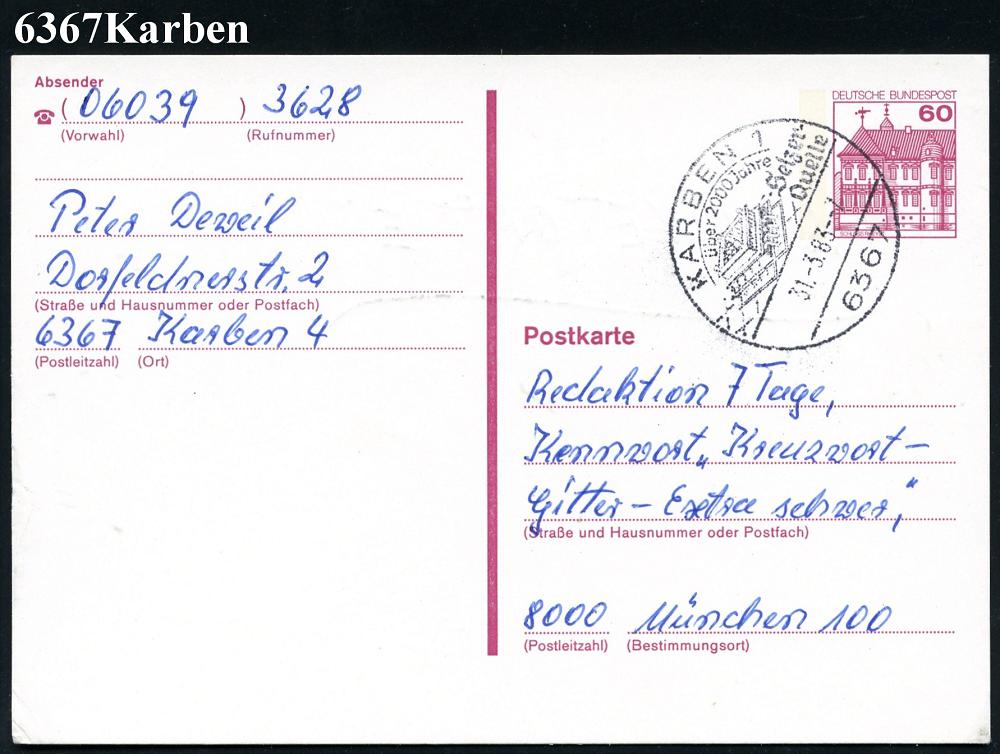 6367Karben
Absender
( 06039 ) 3628
(Vorwahl) (Rufnummer)
Peter Deweil
Dorfeldnerstr. 2
(Straße und Hausnummer oder Postfach)
6367 Karben 4
(Postleitzahl) (Ort)
DEUTSCHE BUNDESPOST
60
KARBEN 1
über 2000 Jahre
Selzer-
Quelle
31.-3.83
6367
Postkarte
Redaktion 7 Tage,
Kennwort „Kreuzwort-
Gitter - Extra schwer,“
(Straße und Hausnummer oder Postfach)
8000 München 100
(Postleitzahl) (Bestimmungsort)